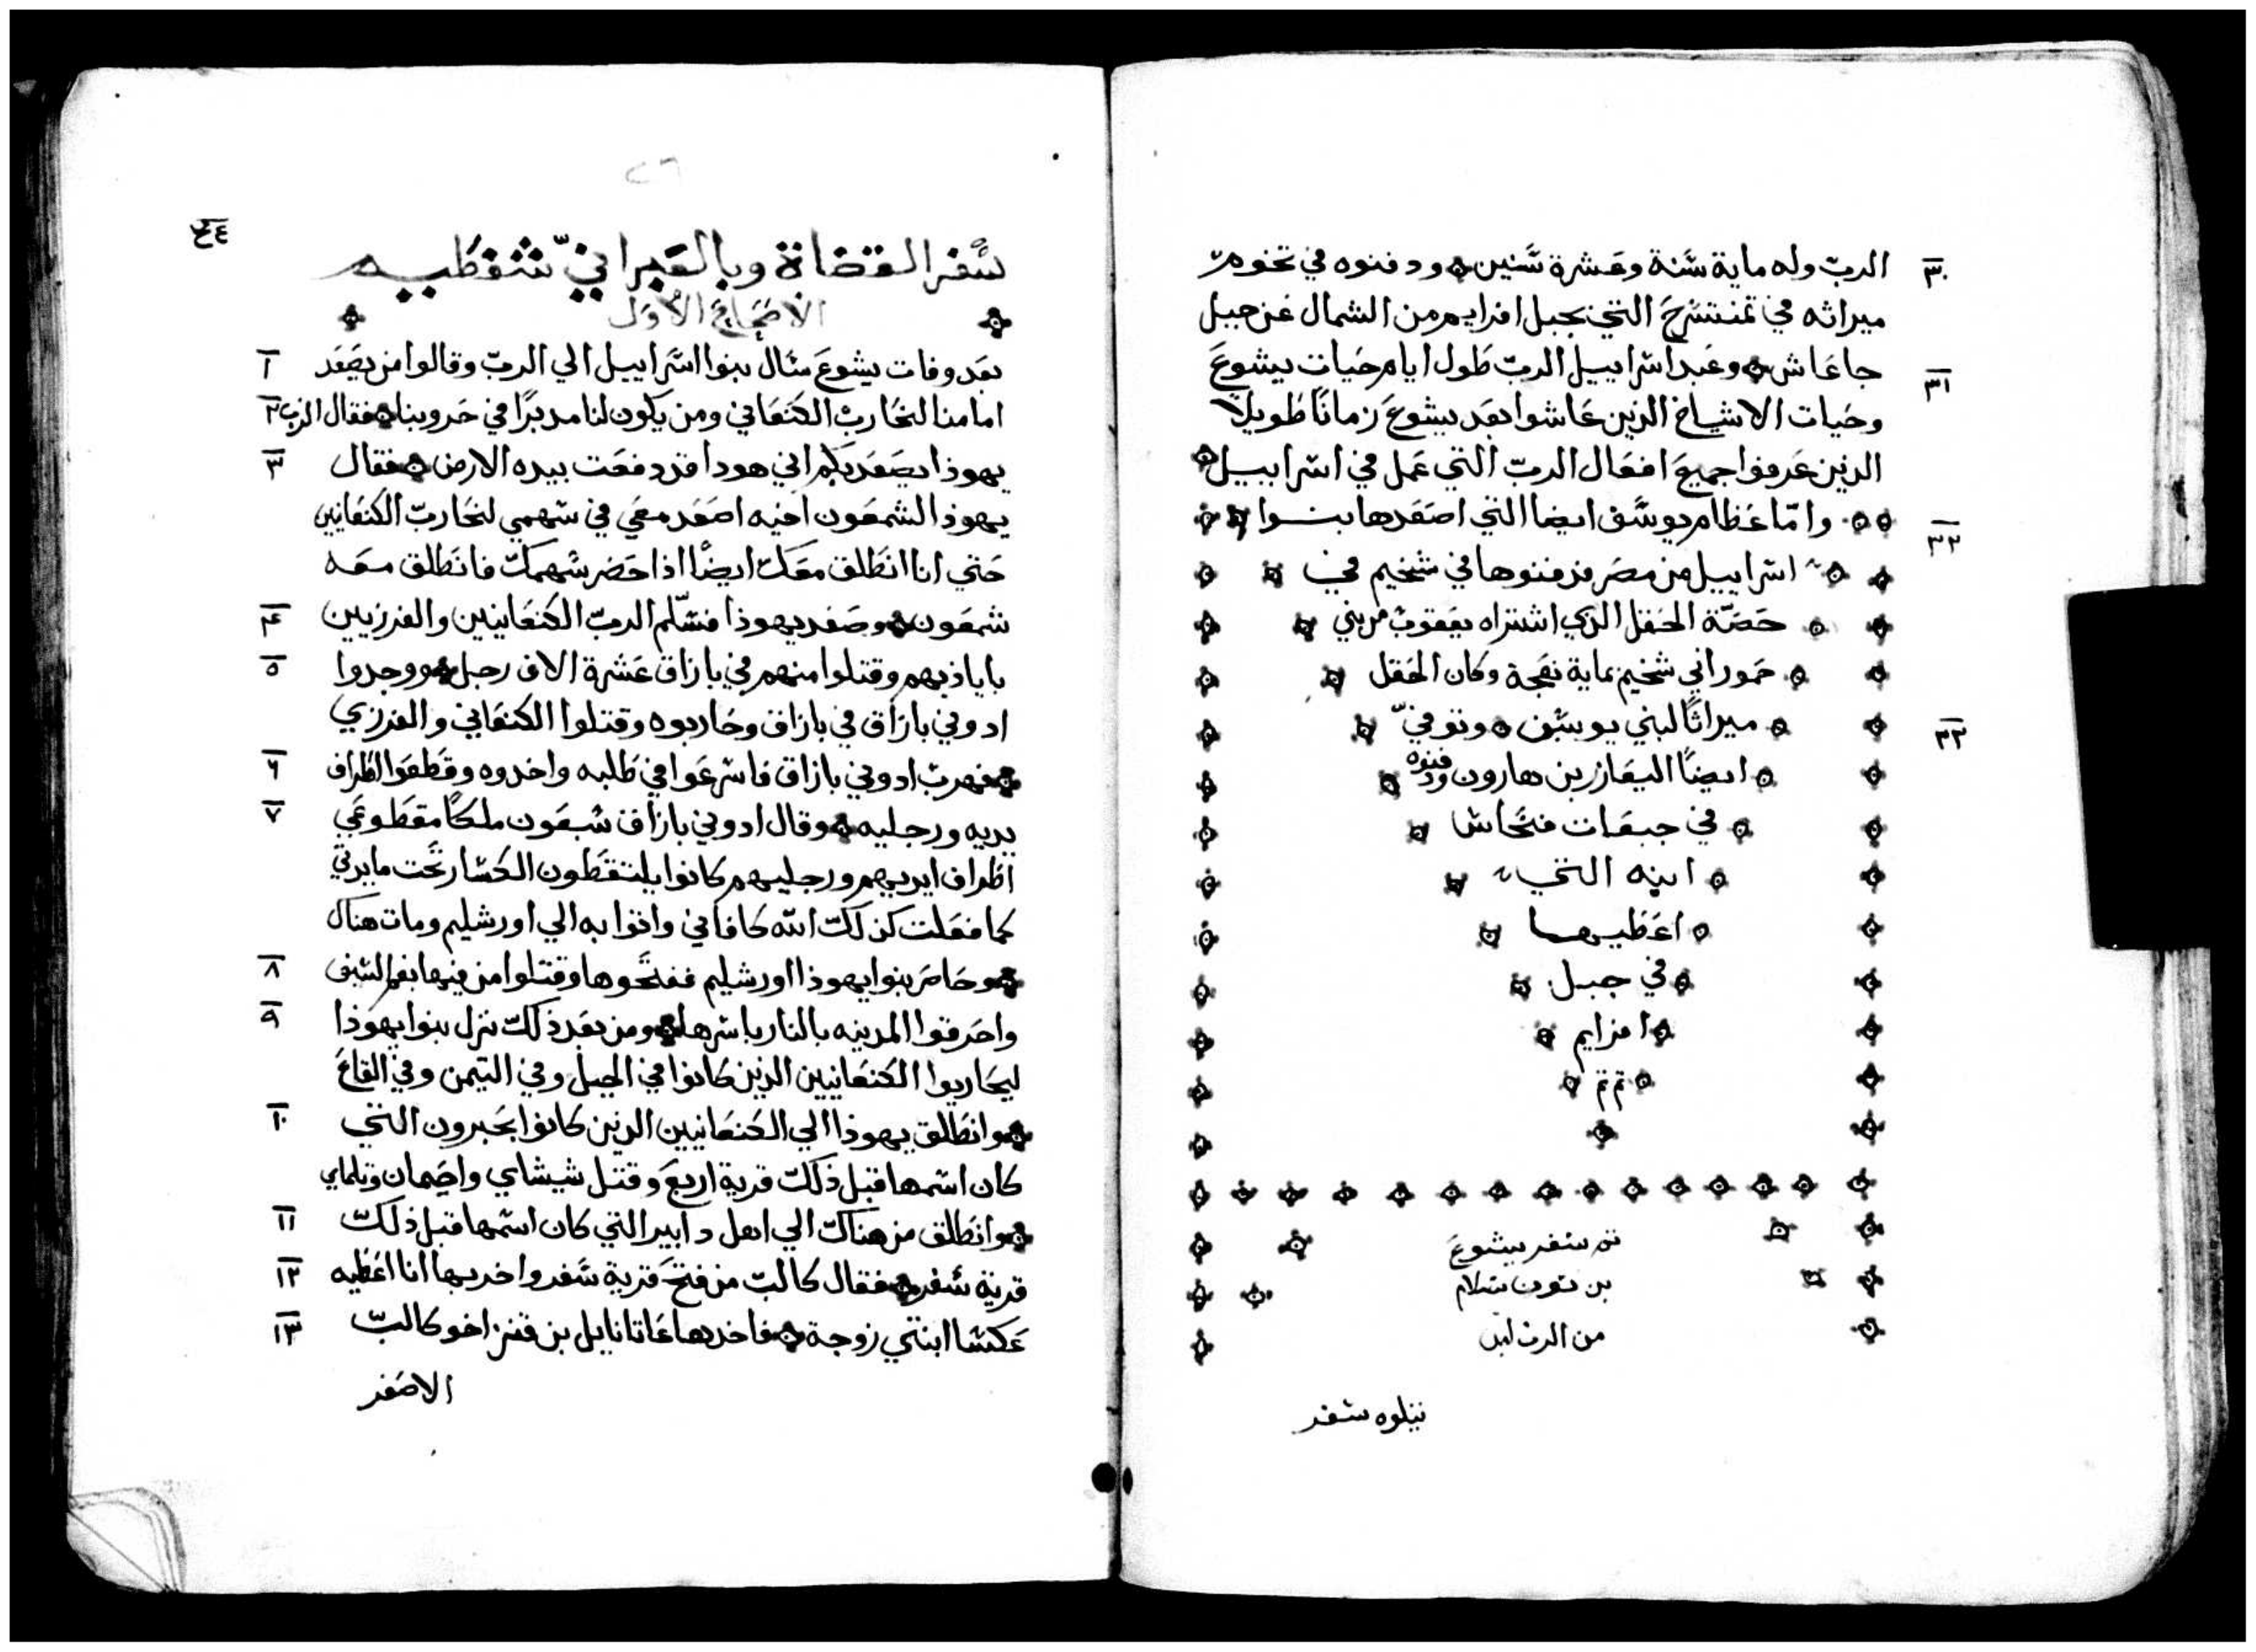 الربّ وله ماية سنة وعشرة سنين ودفنوه في تخوم ٣٠
ميراثه في تمنتسرح التي بجبل افرايم من الشمال عن جبل
جاعاش وعبد اسراييل الربّ طول ايام حيات يشوع ٣١
وحيات الاشياخ الذين عاشوا بعد يشوع زماناً طويلاً
الذين عرفوا جميع افعال الربّ التي عمل في اسراييل
وامّا عظام يوسف ايضا التي اصعدها بنوا ٣٢
اسراييل من مصر فدفنوها في شخيم في
حصّة الحقل الذي اشتراه يعقوب من بني
حمور ابي شخيم بماية نعجة وكان الحقل
ميراثاً لبني يوسف وتوفيّ ٣٣
ايضاً اليعازر بن هارون ودفنوه
في جبعات فنحاس
ابنه التي
اعطيها
في جبل
افرايم
تم تم
تم سفر يشوع
بن نون سلام
من الرب امين
يتلوه سفر
٢٦
٤٤
سفر القضاة وبالعبرانيّ شفطيم
الاصحاح الاول
بعد وفات يشوع سال بنوا اسراييل الي الربّ وقالوا من يصعد ١
امامنا لنحارب الكنعاني ومن يكون لنا مدبرًا في حروبنا فقال الرب ٢
يهوذا يصعد بكم اني هودا قد دفعت بيده الارض فقال ٣
يهوذا لشمعون اخيه اصعد معي في سهمي لنحارب الكنعانيين
حتي انا انطلق معك ايضًا اذا حضر سهمك فانطلق معه
شمعون وصعد يهوذا فسلّم الربّ الكنعانيين والفرزيين ٤
باياذيهم وقتلوا منهم في بازاق عشرة الاف رجل ووجدوا ٥
ادوني بازاق في بازاق وحاربوه وقتلوا الكنعاني والفرزي
فهرب ادوني بازاق فاسرعوا في طلبه واخدوه وقطعوا اطراف ٦
يديه ورجليه وقال ادوني بازاق سبعون ملكاً مقطوعي ٧
اطراف ايديهم ورجليهم كانوا يلتقطون الكسار تحت مايدتي
كما فعلت كذلك الله كافاني واتوا به الي اورشليم ومات هناك
وحاصر بنوا يهوذا اورشليم ففتحوها وقتلوا من فيها بفم السيف ٨
واحرقوا المدينه بالنار باسرها ومن بعد ذلك نزل بنوا يهوذا ٩
ليحاربوا الكنعانيين الذين كانوا في الجبل وفي التيمن وفي القاع
وانطلق يهوذا الي الكنعانيين الذين كانوا بحبرون التي ١٠
كان اسمها قبل ذلك قرية اربع وقتل شيشاي واحيمان وتلماي
وانطلق من هناك الي اهل دابير التي كان اسمها قبل ذلك ١١
قرية سفر فقال كالب من فتح قرية سفر واخد بها انا اعطيه ١٢
عكسا ابنتي زوجة فاخدها عاتانايل بن قنز اخو كالبّ ١٣
الاصغر